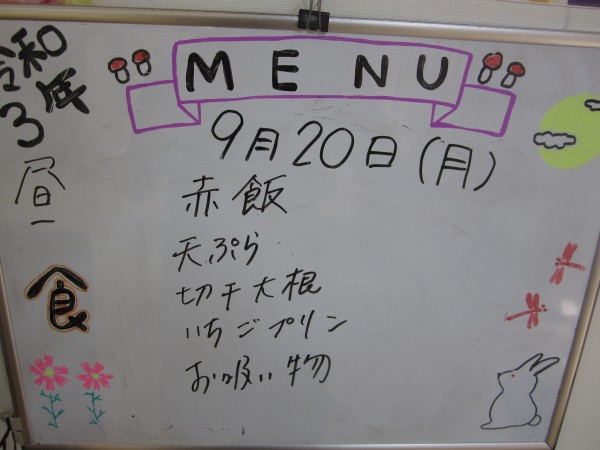 MENU
令和
3年
昼食
9月20日(月)
赤飯
天ぷら
切干大根
いちごプリン
お吸い物